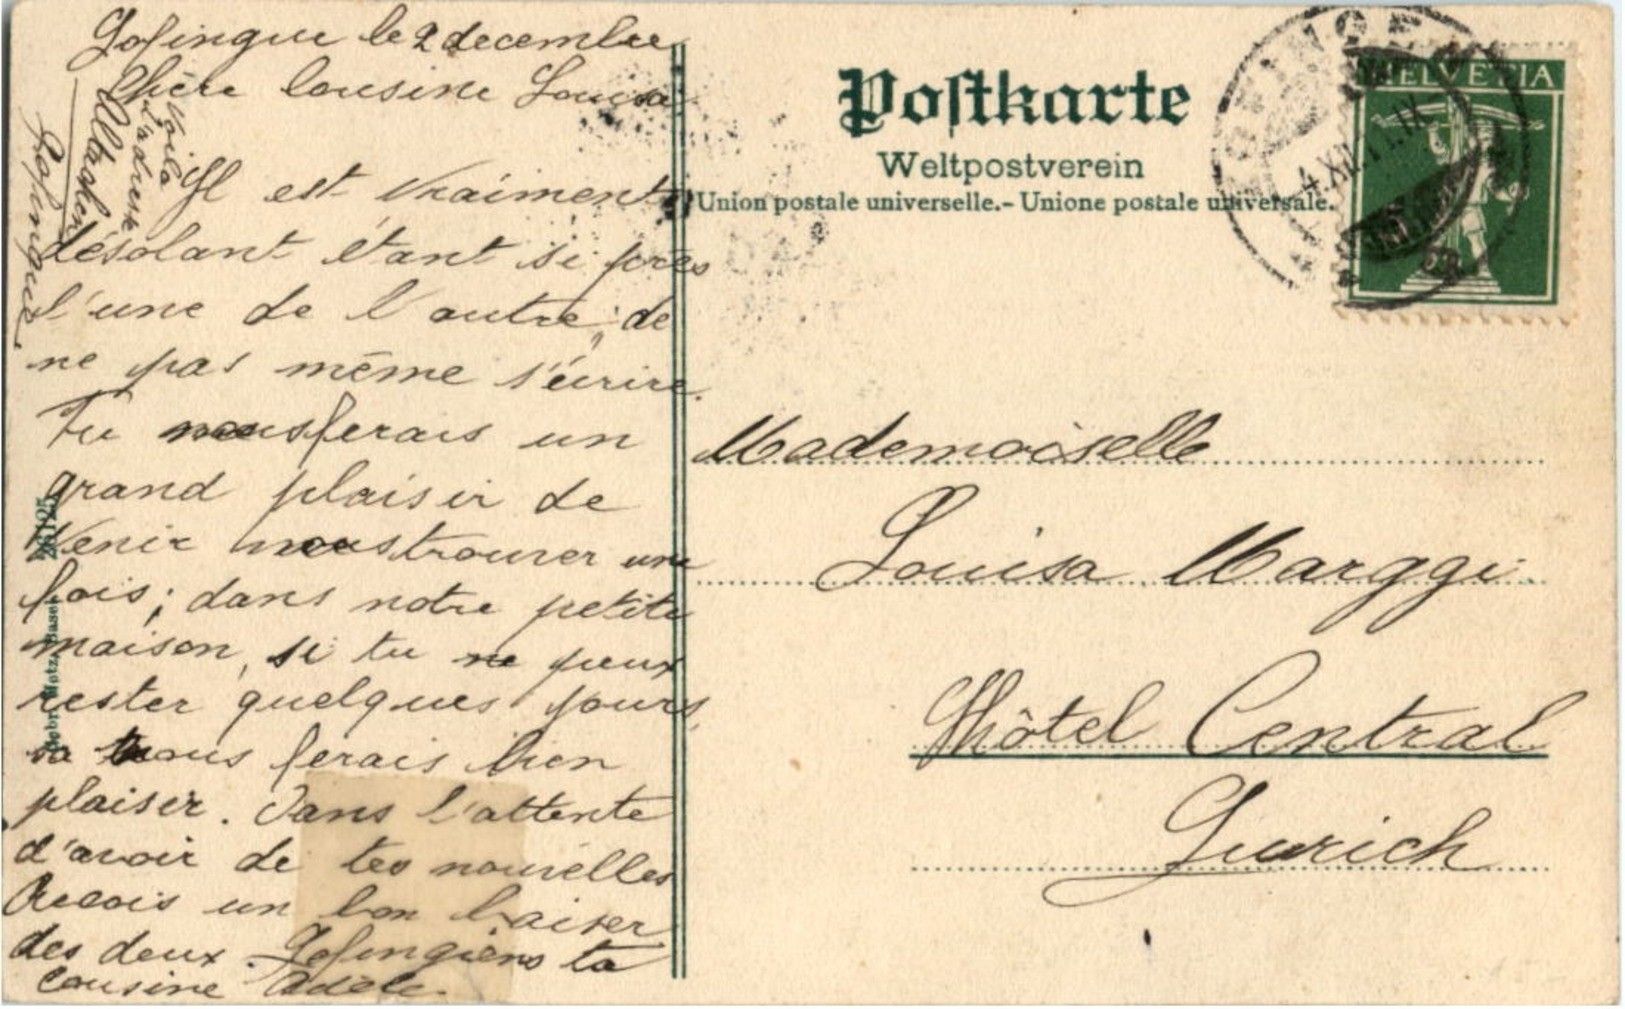 Zofingue le 2 decembre
Chère Cousine Louisa
Il est vraiment
désolant étant si près
l'une de l'autre, de
ne pas même s'écrire.
Tu nous ferais un
grand plaisir de
venir nous trouver une
fois; dans notre petite
maison, si tu peux
rester quelques jours,
sa nous ferais bien
plaisir. Dans l'attente
d'avoir de tes nouvelles
Recois un bon baiser
des deux Zofingiens ta
cousine Adèle.
Voila
l'adresse
Zofingue
26125
Gebr. Metz, Basel
Postkarte
Weltpostverein
Union postale universelle.- Unione postale universale.
HELVETIA
Mademoiselle
Louisa Marggi.
Hôtel Central
Zurich